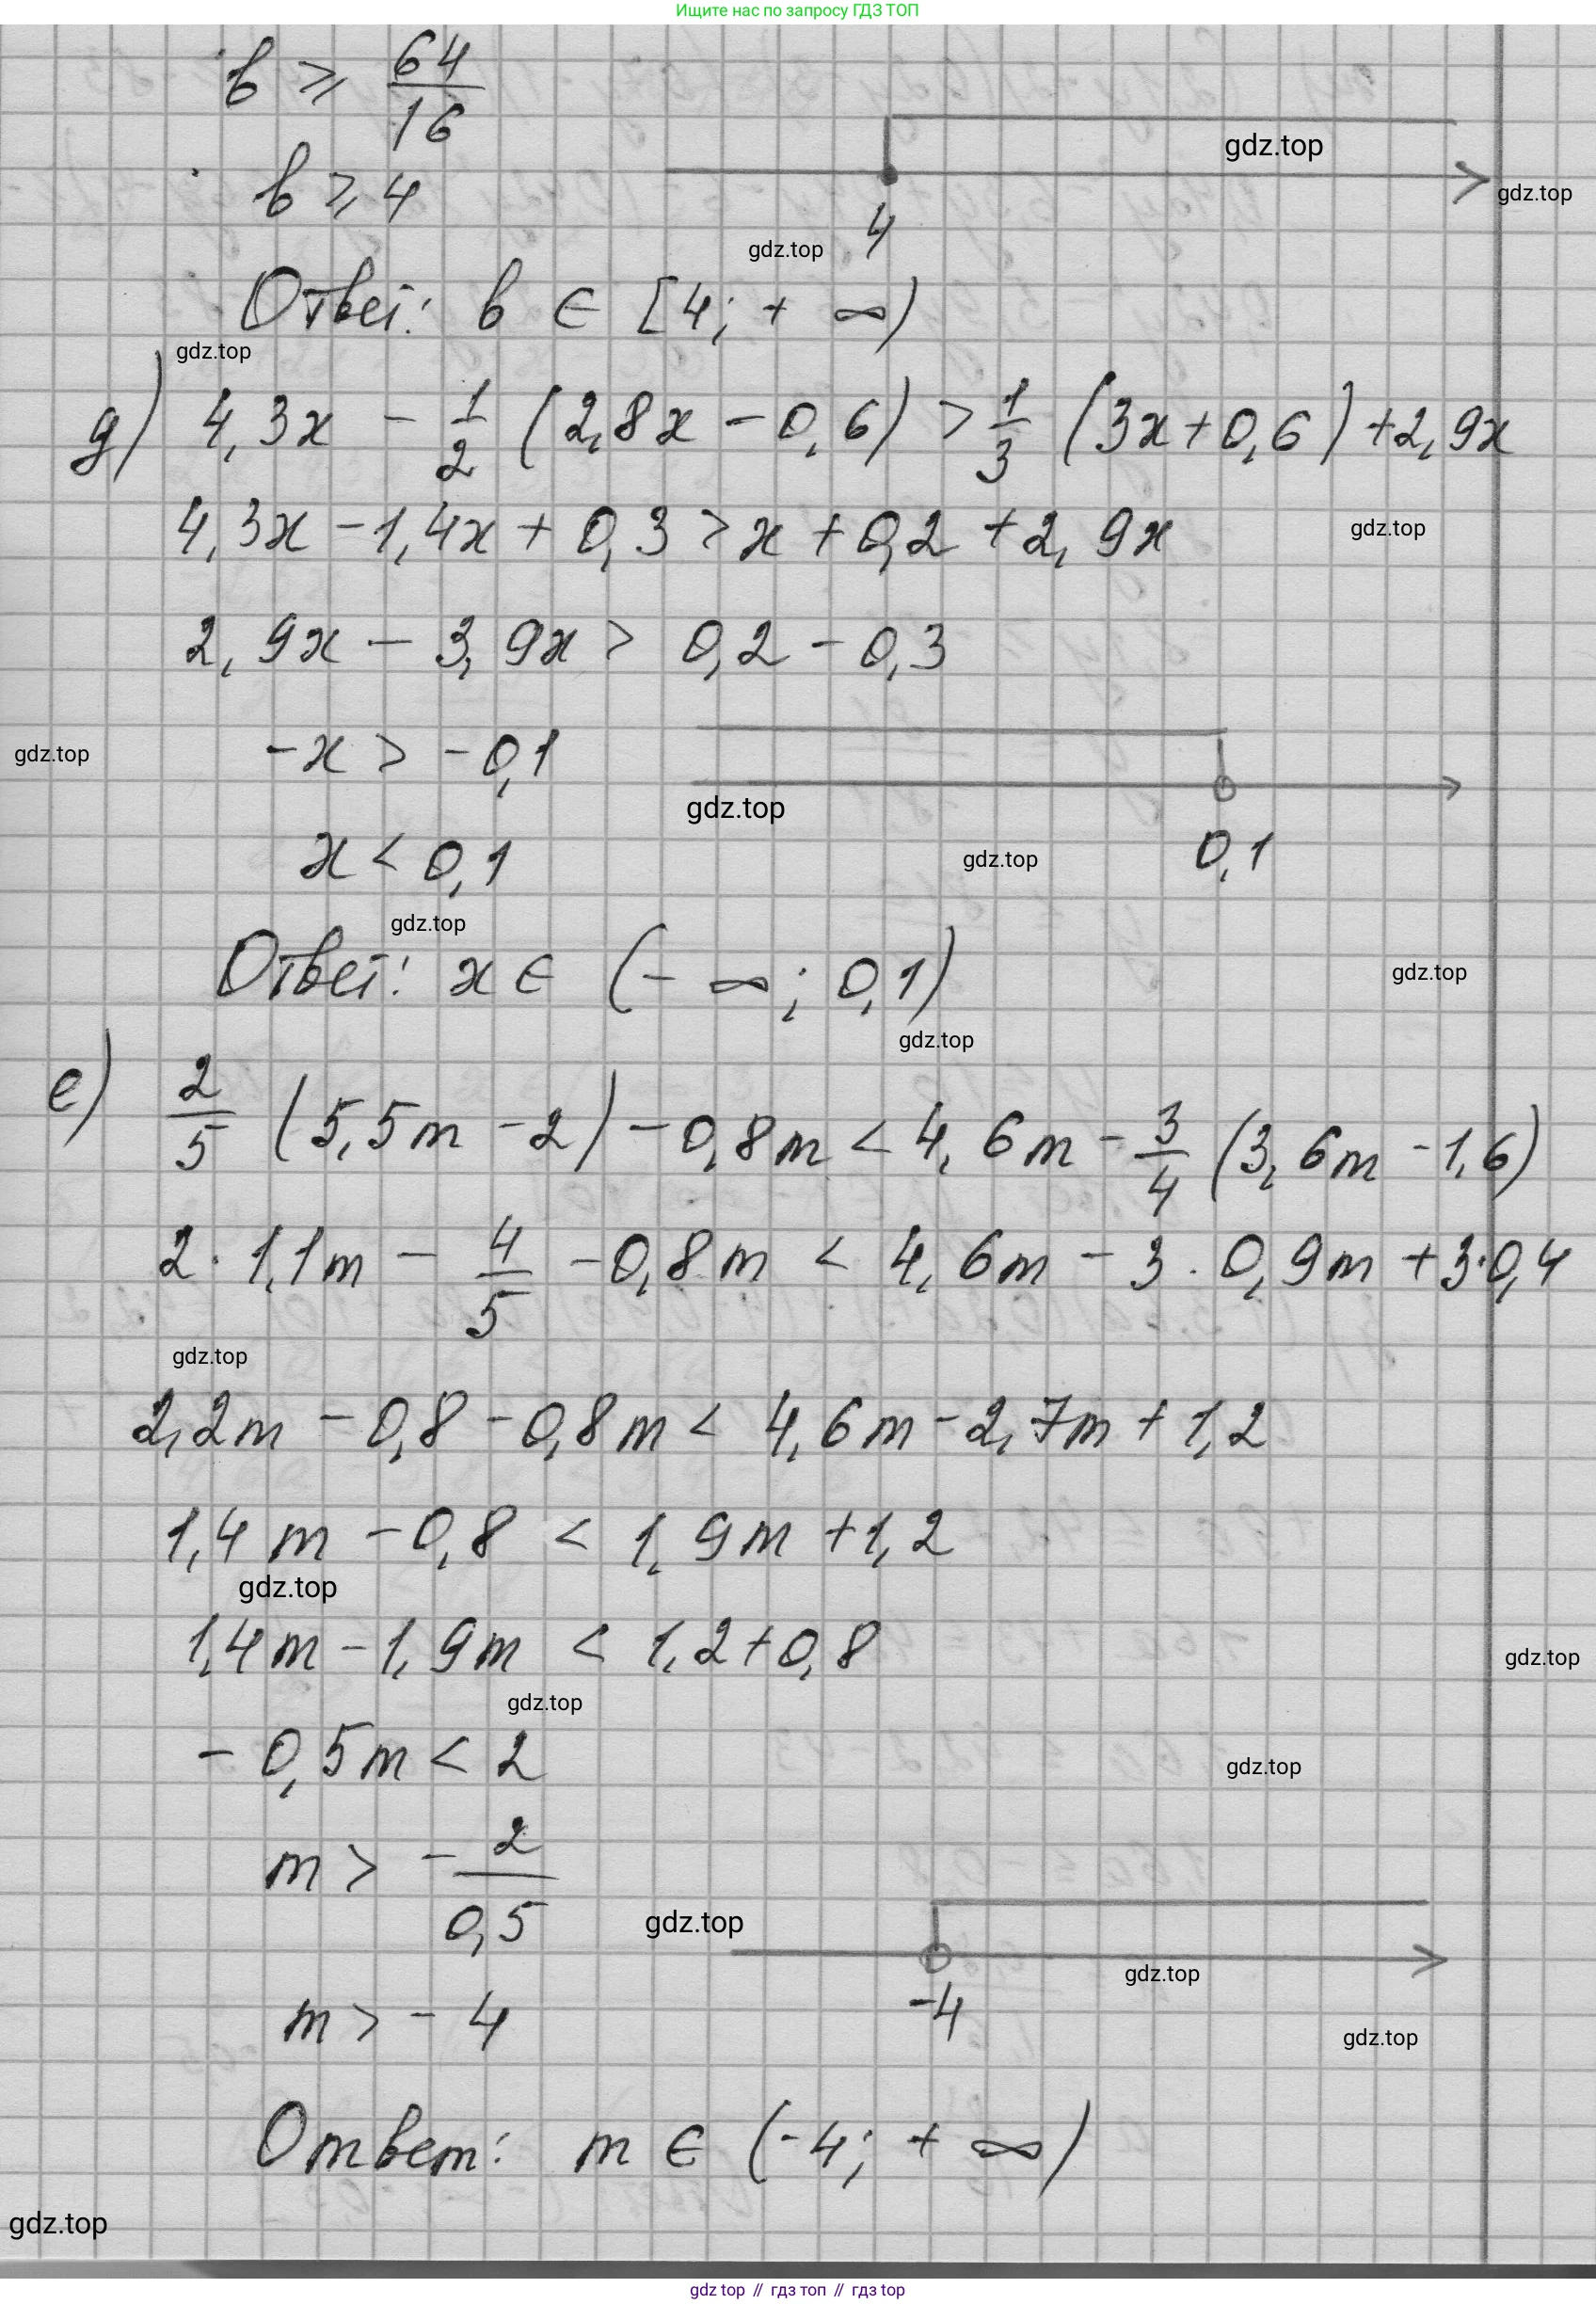 Ищите нас по запросу ГДЗ ТОП
b ⩾ 64/16
gdz.top
b ⩾ 4
gdz.top
4
gdz.top
Ответ: b ∈ [4; + ∞)
gdz.top
д) 4,3x - 1/2 (2,8x - 0,6) > 1/3 (3x + 0,6) + 2,9x
4,3x - 1,4x + 0,3 > x + 0,2 + 2,9x
gdz.top
2,9x - 3,9x > 0,2 - 0,3
gdz.top
-x > -0,1
gdz.top
x < 0,1
gdz.top
0,1
gdz.top
Ответ: x ∈ (- ∞; 0,1)
gdz.top
gdz.top
е) 2/5 (5,5m - 2) - 0,8m < 4,6m - 3/4 (3,6m - 1,6)
2 · 1,1m - 4/5 - 0,8m < 4,6m - 3 · 0,9m + 3·0,4
gdz.top
2,2m - 0,8 - 0,8m < 4,6m - 2,7m + 1,2
1,4m - 0,8 < 1,9m + 1,2
gdz.top
1,4m - 1,9m < 1,2 + 0,8
gdz.top
gdz.top
- 0,5m < 2
gdz.top
m > - 2/0,5
gdz.top
gdz.top
m > - 4
-4
gdz.top
Ответ: m ∈ (-4; + ∞)
gdz.top
gdz top // гдз топ // гдз top